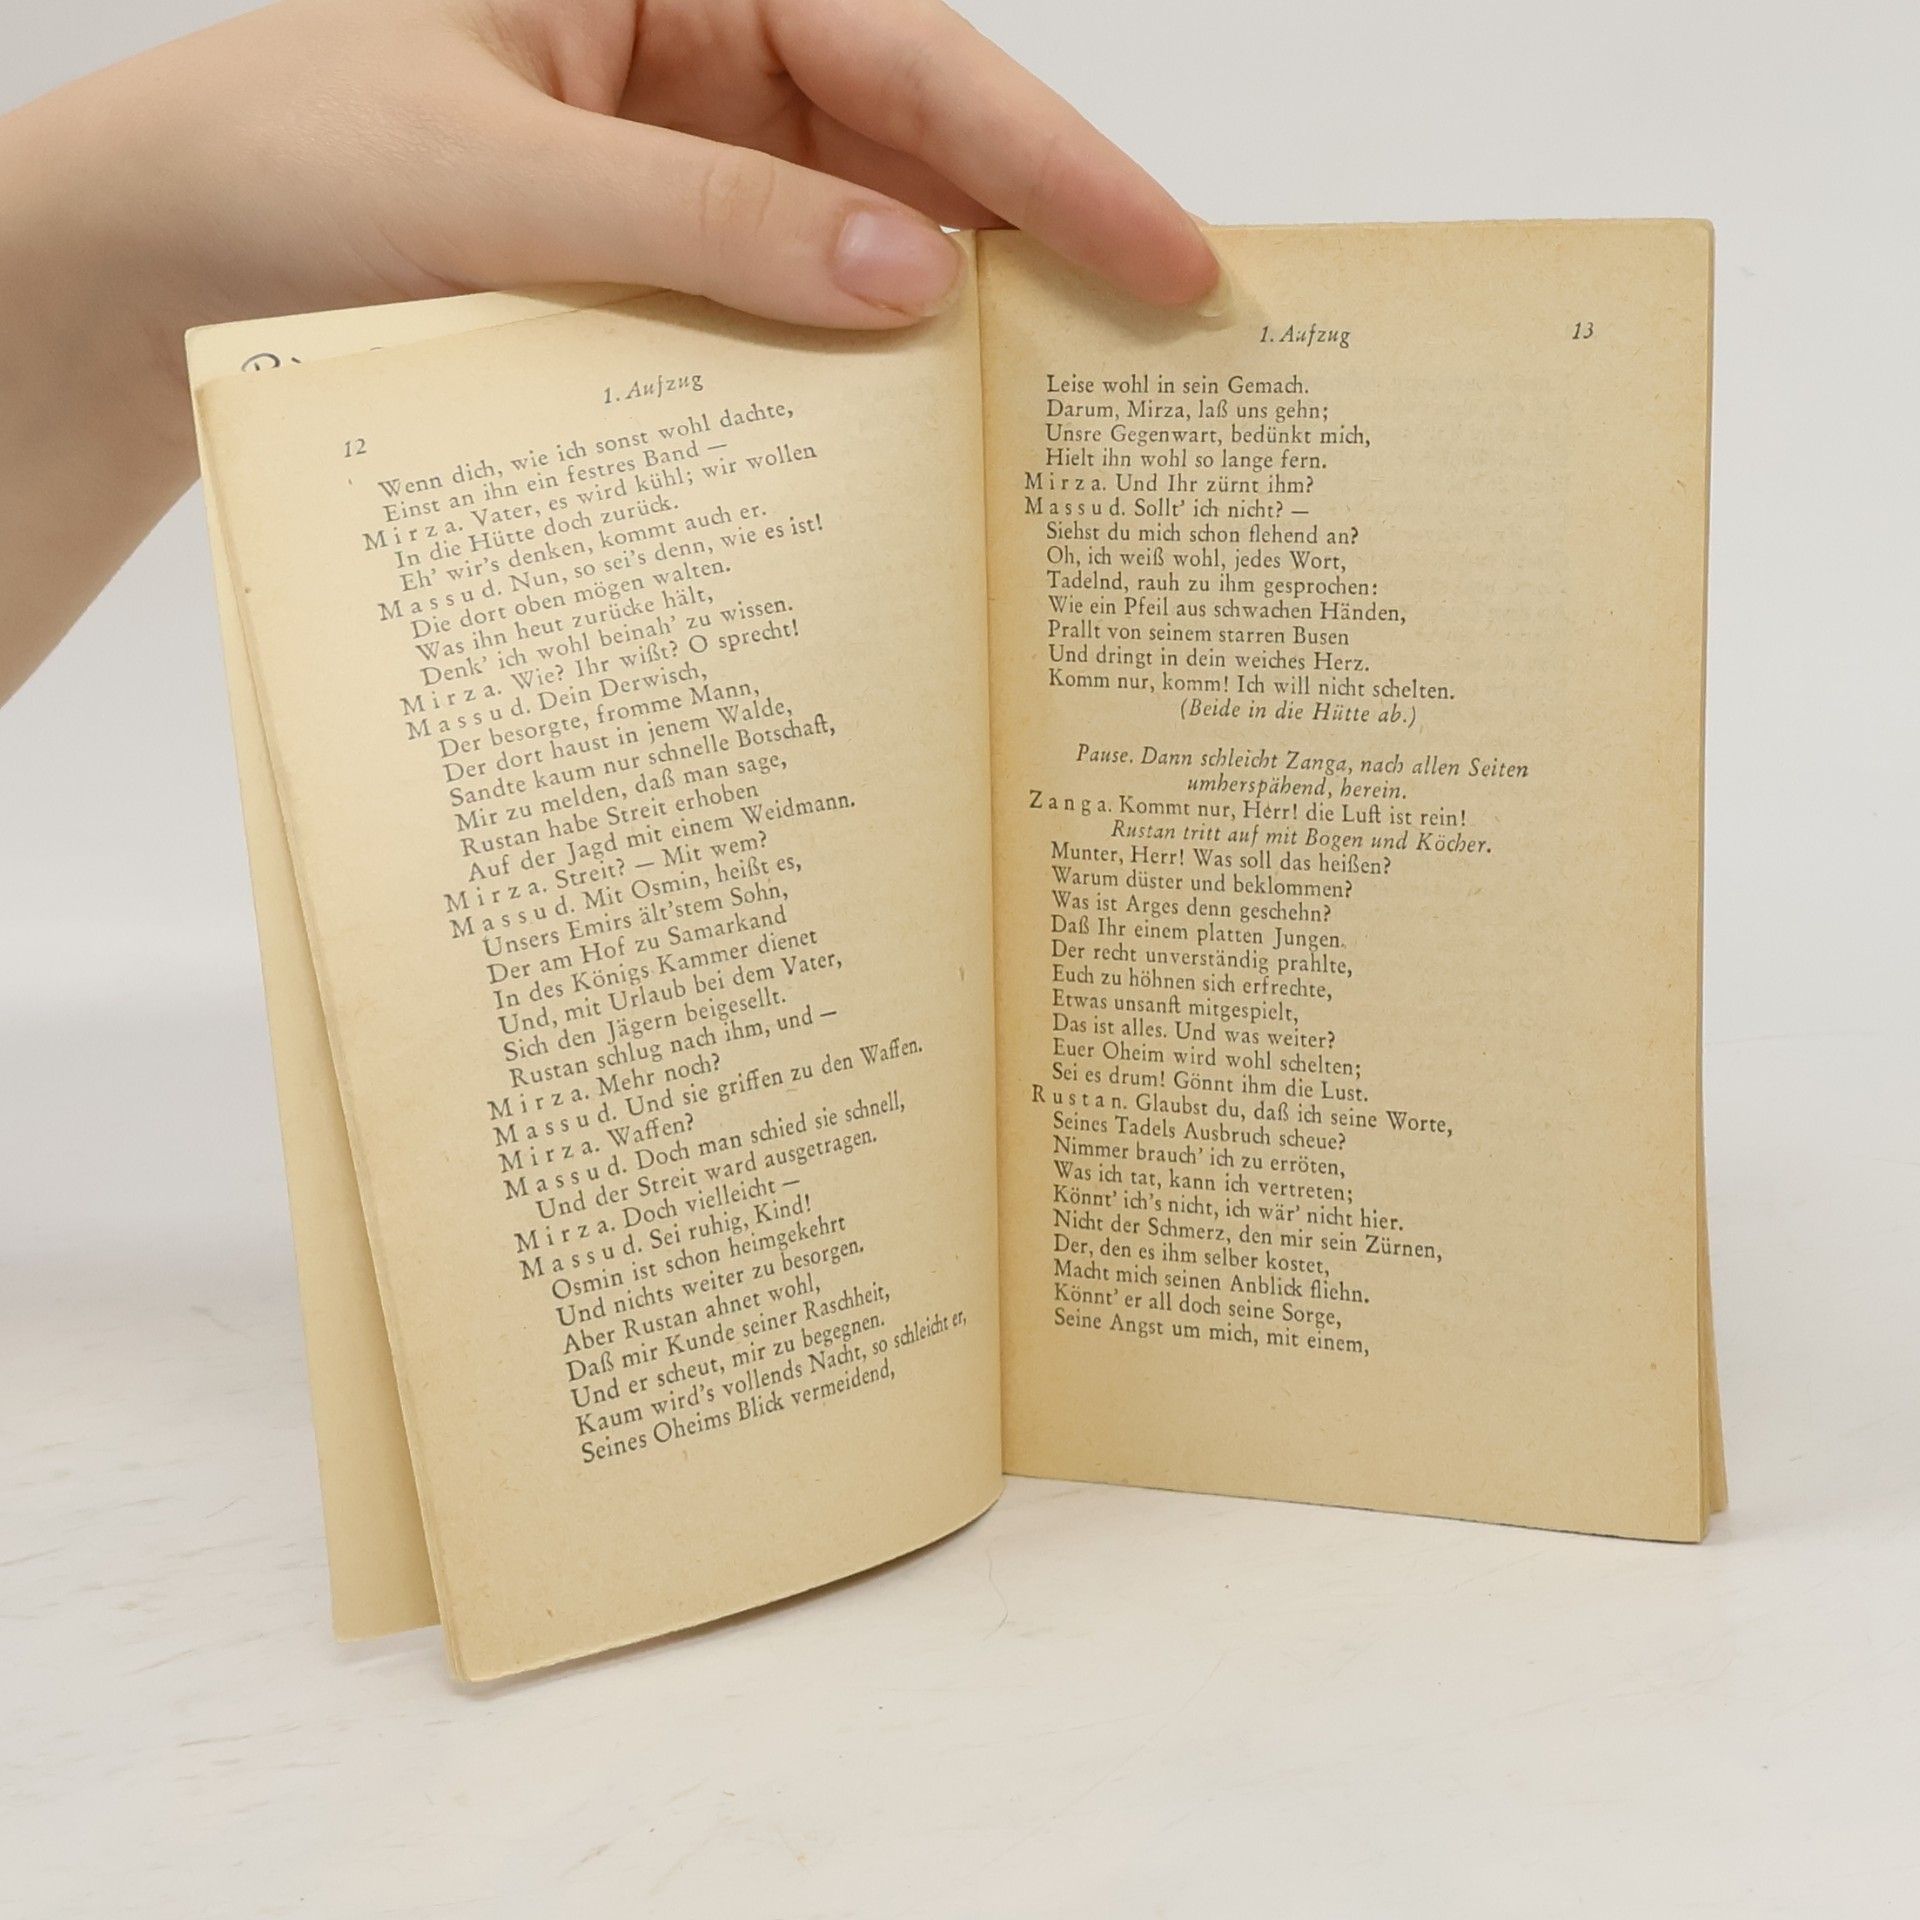 1. Aufzug
12
Wenn dich, wie ich sonst wohl dachte,
Einst an ihn ein festres Band —
Mirza. Vater, es wird kühl; wir wollen
In die Hütte doch zurück.
Eh' wir's denken, kommt auch er.
Massud. Nun, so sei's denn, wie es ist!
Die dort oben mögen walten.
Was ihn heut zurücke hält,
Denk' ich wohl beinah' zu wissen.
Mirza. Wie? Ihr wißt? O sprecht!
Massud. Dein Derwisch,
Der besorgte, fromme Mann,
Der dort haust in jenem Walde,
Sandte kaum nur schnelle Botschaft,
Mir zu melden, daß man sage,
Rustan habe Streit erhoben
Auf der Jagd mit einem Weidmann.
Mirza. Streit? — Mit wem?
Massud. Mit Osmin, heißt es,
Unsers Emirs ält'stem Sohn,
Der am Hof zu Samarkand
In des Königs Kammer dienet
Und, mit Urlaub bei dem Vater,
Sich den Jägern beigesellt.
Rustan schlug nach ihm, und —
Mirza. Mehr noch?
Massud. Und sie griffen zu den Waffen.
Mirza. Waffen?
Massud. Doch man schied sie schnell,
Und der Streit ward ausgetragen.
Mirza. Doch vielleicht —
Massud. Sei ruhig, Kind!
Osmin ist schon heimgekehrt
Und nichts weiter zu besorgen.
Aber Rustan ahnet wohl,
Daß mir Kunde seiner Raschheit,
Und er scheut, mir zu begegnen.
Kaum wird's vollends Nacht, so schleicht er,
Seines Oheims Blick vermeidend,
1. Aufzug
13
Leise wohl in sein Gemach.
Darum, Mirza, laß uns gehn;
Unsre Gegenwart, bedünkt mich,
Hielt ihn wohl so lange fern.
Mirza. Und Ihr zürnt ihm?
Massud. Sollt' ich nicht? —
Siehst du mich schon flehend an?
Oh, ich weiß wohl, jedes Wort,
Tadelnd, rauh zu ihm gesprochen:
Wie ein Pfeil aus schwachen Händen,
Prallt von seinem starren Busen
Und dringt in dein weiches Herz.
Komm nur, komm! Ich will nicht schelten.
(Beide in die Hütte ab.)
Pause. Dann schleicht Zanga, nach allen Seiten
umherspähend, herein.
Zanga. Kommt nur, Herr! die Luft ist rein!
Rustan tritt auf mit Bogen und Köcher.
Munter, Herr! Was soll das heißen?
Warum düster und beklommen?
Was ist Arges denn geschehn?
Daß Ihr einem platten Jungen,
Der recht unverständig prahlte,
Euch zu höhnen sich erfrechte,
Etwas unsanft mitgespielt,
Das ist alles. Und was weiter?
Euer Oheim wird wohl schelten;
Sei es drum! Gönnt ihm die Lust.
Rustan. Glaubst du, daß ich seine Worte,
Seines Tadels Ausbruch scheue?
Nimmer brauch' ich zu erröten,
Was ich tat, kann ich vertreten;
Könnt' ich's nicht, ich wär' nicht hier.
Nicht der Schmerz, den mir sein Zürnen,
Der, den es ihm selber kostet,
Macht mich seinen Anblick fliehn.
Könnt' er all doch seine Sorge,
Seine Angst um mich, mit einem,